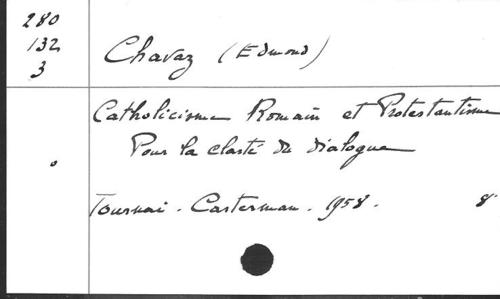 280
132
3
Chavaz (Edmond)
Catholicisme Romain et Protestantisme
Pour la clarté du dialogue
Tournai. Casterman. 1958. 8°